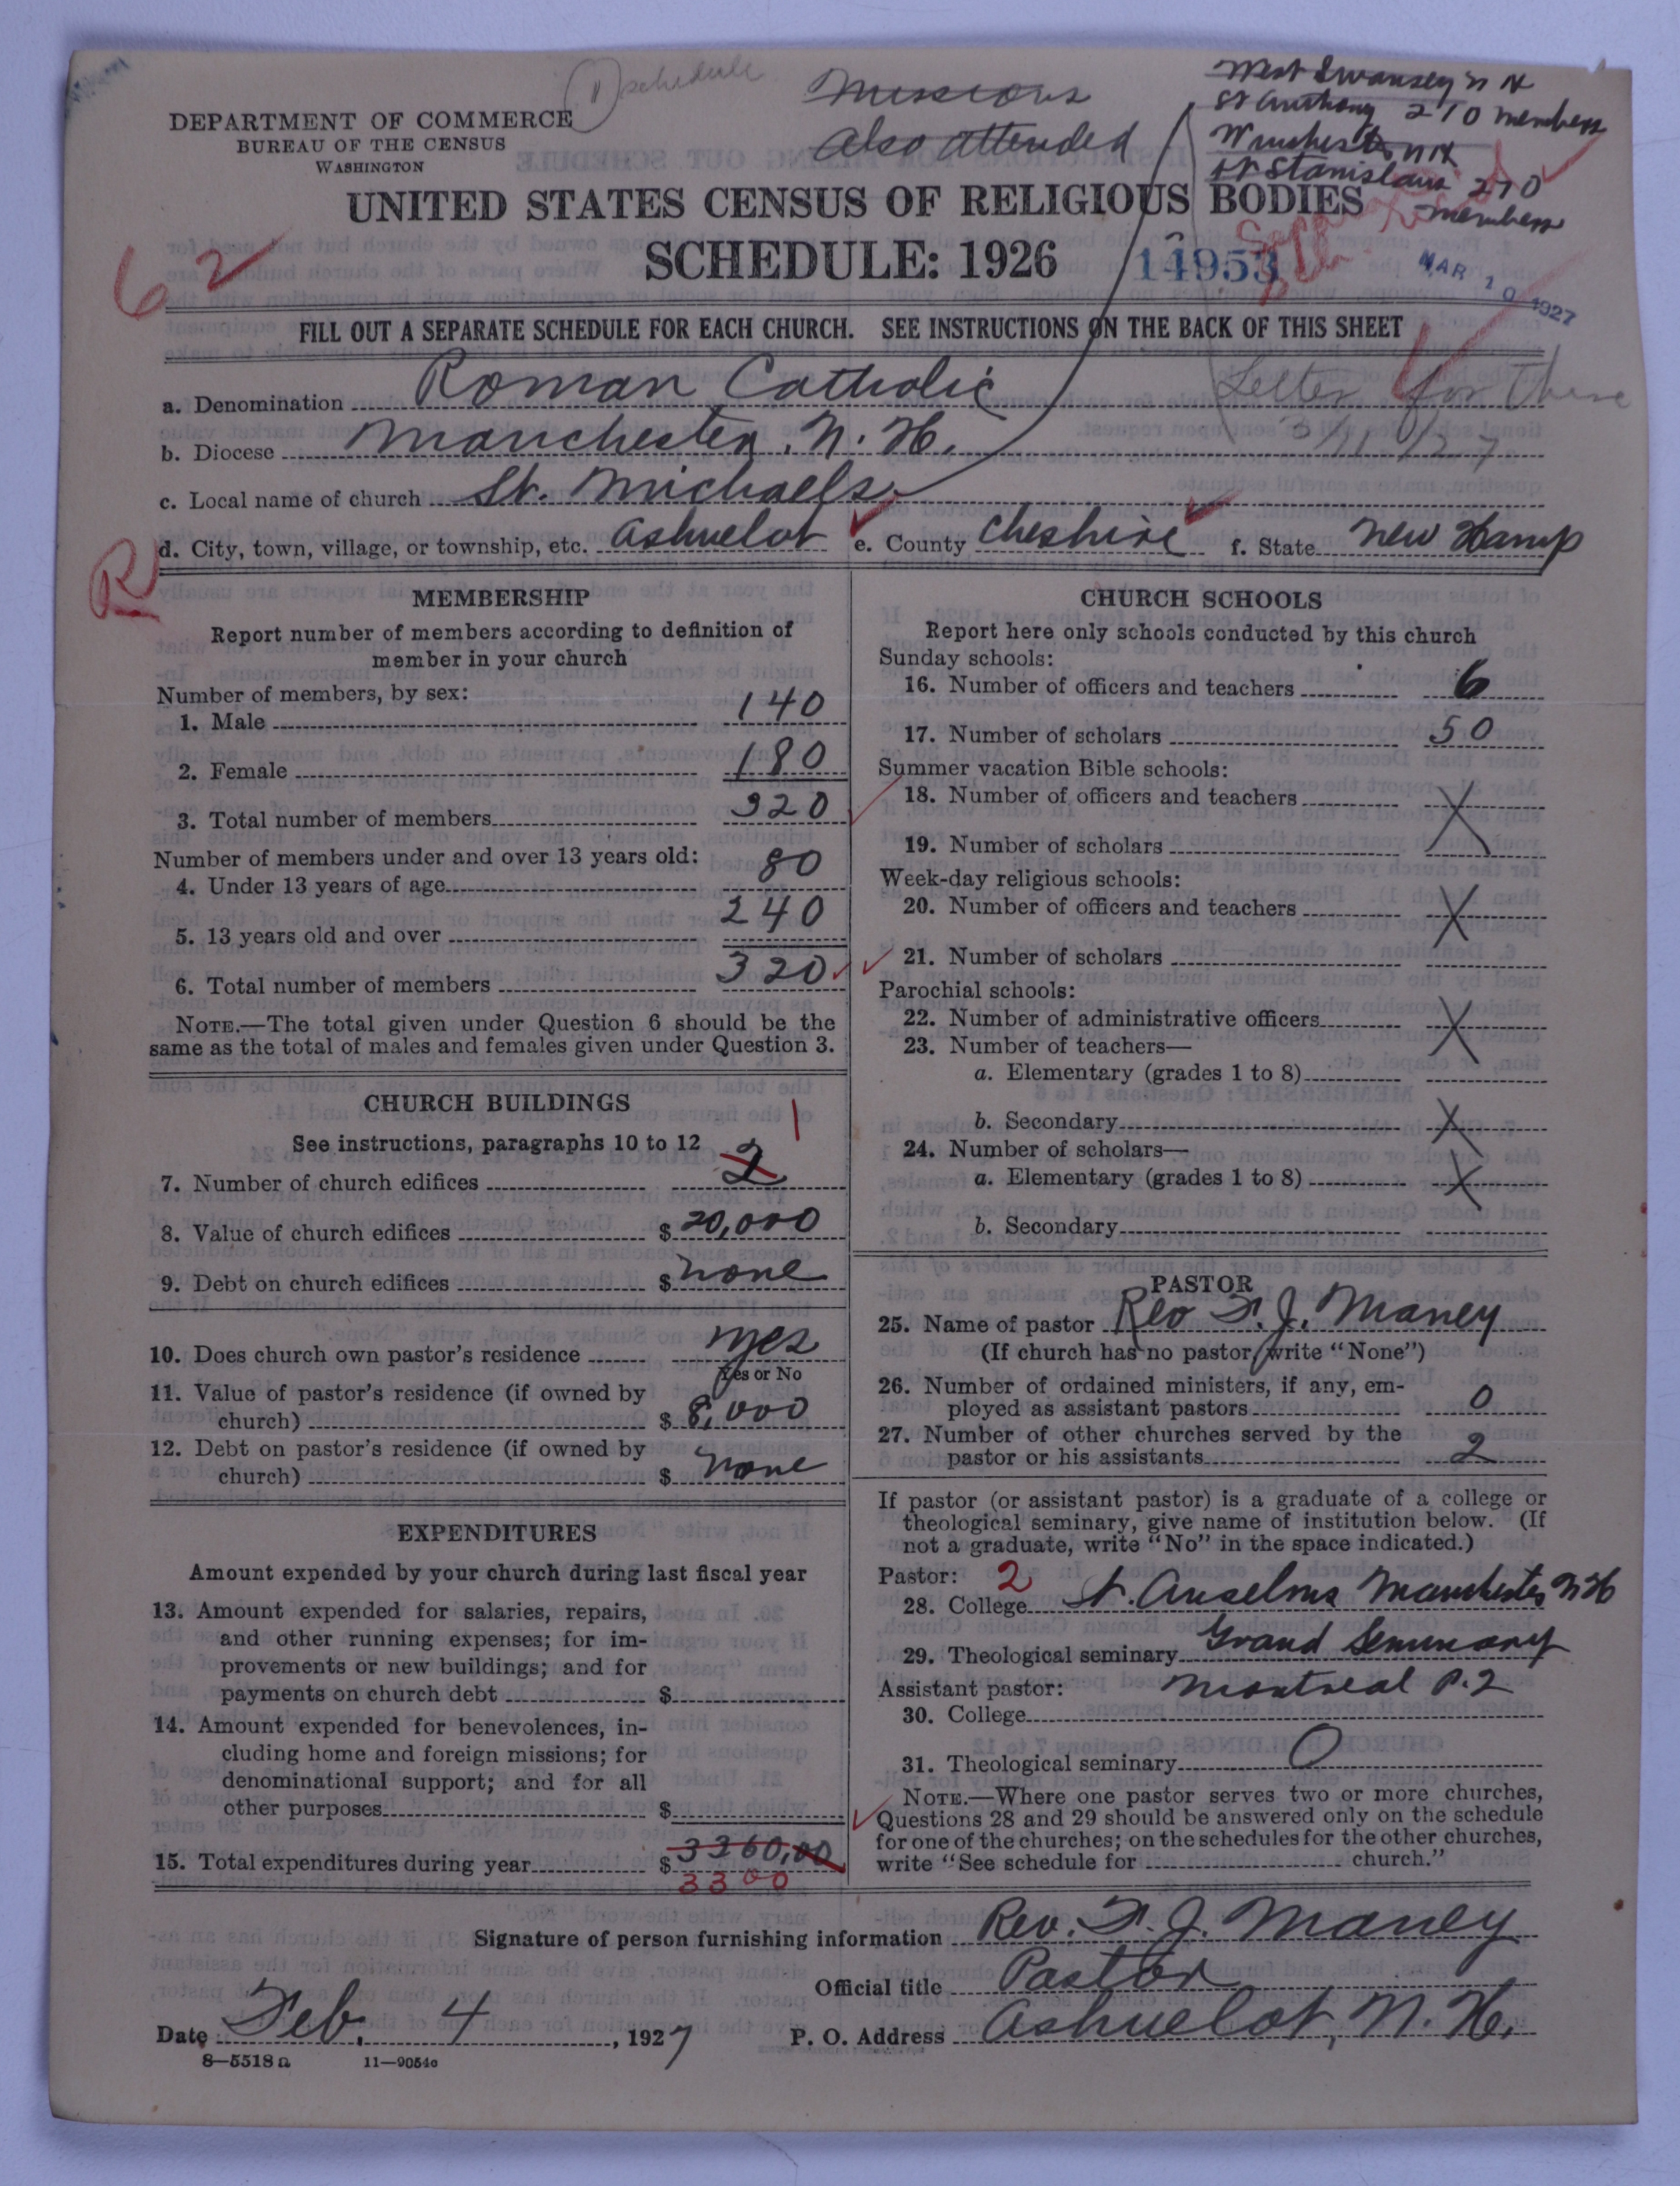 (1) schedule
Missions
also attended
West Swansey N H
St Anthony 210 members
Winchester NH
St Stanislaus 270
members
DEPARTMENT OF COMMERCE
BUREAU OF THE CENSUS
WASHINGTON
UNITED STATES CENSUS OF RELIGIOUS BODIES
SCHEDULE: 1926
14953
MAR 10 1927
62
FILL OUT A SEPARATE SCHEDULE FOR EACH CHURCH. SEE INSTRUCTIONS ON THE BACK OF THIS SHEET
Letter for these
3/11/27
a. Denomination Roman Catholic
b. Diocese Manchester, N. H.
c. Local name of church St. Michaels
d. City, town, village, or township, etc. Ashuelot e. County Cheshire f. State New Hamp
R
MEMBERSHIP
Report number of members according to definition of
member in your church
Number of members, by sex:
1. Male 140
2. Female 180
3. Total number of members 320
Number of members under and over 13 years old:
4. Under 13 years of age 80
5. 13 years old and over 240
6. Total number of members 320
NOTE.—The total given under Question 6 should be the
same as the total of males and females given under Question 3.
CHURCH BUILDINGS
See instructions, paragraphs 10 to 12
1
7. Number of church edifices 2
8. Value of church edifices $ 20,000
9. Debt on church edifices $ none
10. Does church own pastor's residence yes
Yes or No
11. Value of pastor's residence (if owned by
church) $ 8,000
12. Debt on pastor's residence (if owned by
church) $ none
EXPENDITURES
Amount expended by your church during last fiscal year
13. Amount expended for salaries, repairs,
and other running expenses; for im-
provements or new buildings; and for
payments on church debt $
14. Amount expended for benevolences, in-
cluding home and foreign missions; for
denominational support; and for all
other purposes $
15. Total expenditures during year $ 3360,00
3300
CHURCH SCHOOLS
Report here only schools conducted by this church
Sunday schools:
16. Number of officers and teachers 6
17. Number of scholars 50
Summer vacation Bible schools:
18. Number of officers and teachers X
19. Number of scholars
Week-day religious schools:
20. Number of officers and teachers X
21. Number of scholars
Parochial schools:
22. Number of administrative officers X
23. Number of teachers—
a. Elementary (grades 1 to 8)
b. Secondary X
24. Number of scholars—
a. Elementary (grades 1 to 8) X
b. Secondary
PASTOR
25. Name of pastor Rev F. J. Maney
(If church has no pastor, write "None")
26. Number of ordained ministers, if any, em-
ployed as assistant pastors 0
27. Number of other churches served by the
pastor or his assistants 2
If pastor (or assistant pastor) is a graduate of a college or
theological seminary, give name of institution below. (If
not a graduate, write "No" in the space indicated.)
Pastor: 2
28. College St. Anselms Manchester NH
29. Theological seminary Grand Seminary
Assistant pastor: Montreal P.Q
30. College
31. Theological seminary 0
NOTE.—Where one pastor serves two or more churches,
Questions 28 and 29 should be answered only on the schedule
for one of the churches; on the schedules for the other churches,
write "See schedule for church."
Signature of person furnishing information Rev. F. J. Maney
Official title Pastor
Date Feb. 4, 1927 P. O. Address Ashuelot, N. H.
8—5518a 11—9054c